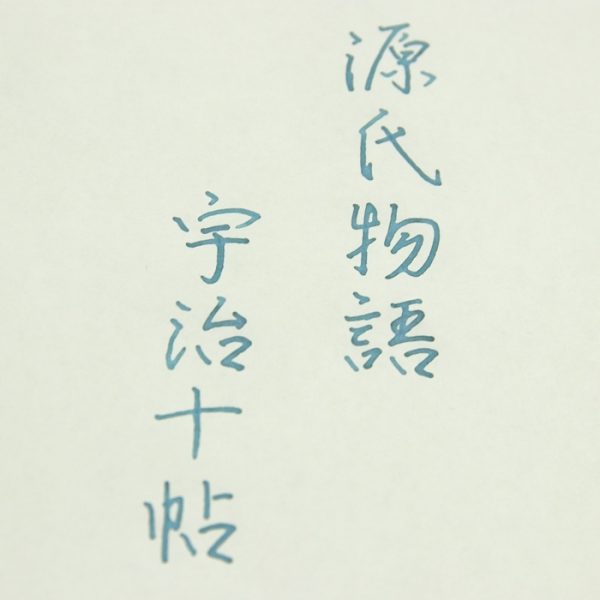 源氏物語
宇治十帖